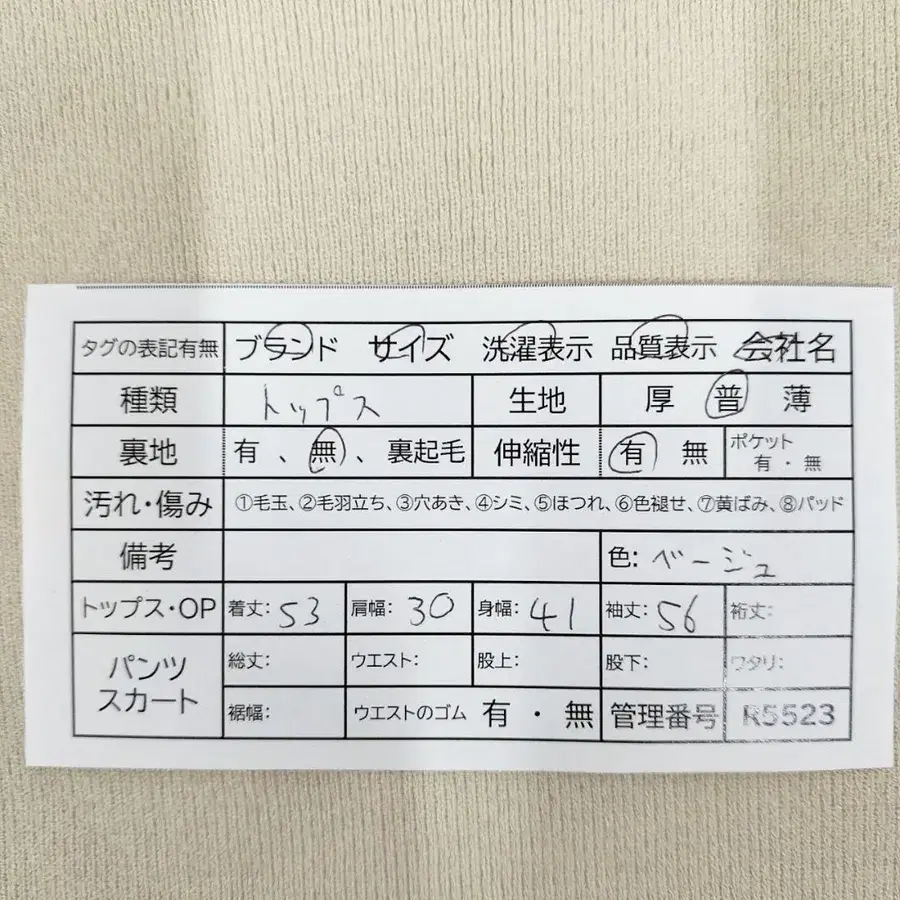 タグの表記有無 ブランド サイズ 洗濯表示 品質表示 会社名
種類 トップス 生地 厚 普 薄
裏地 有 、無、裏起毛 伸縮性 有 無 ポケット 有・無
汚れ・傷み ①毛玉、②毛羽立ち、③穴あき、④シミ、⑤ほつれ、⑥色褪せ、⑦黄ばみ、⑧パッド
備考 色: ベージュ
トップス・OP 着丈: 53 肩幅: 30 身幅: 41 袖丈: 56 裄丈:
パンツ スカート 総丈: ウエスト: 股上: 股下: ワタリ:
裾幅: ウエストのゴム 有・無 管理番号 R5523